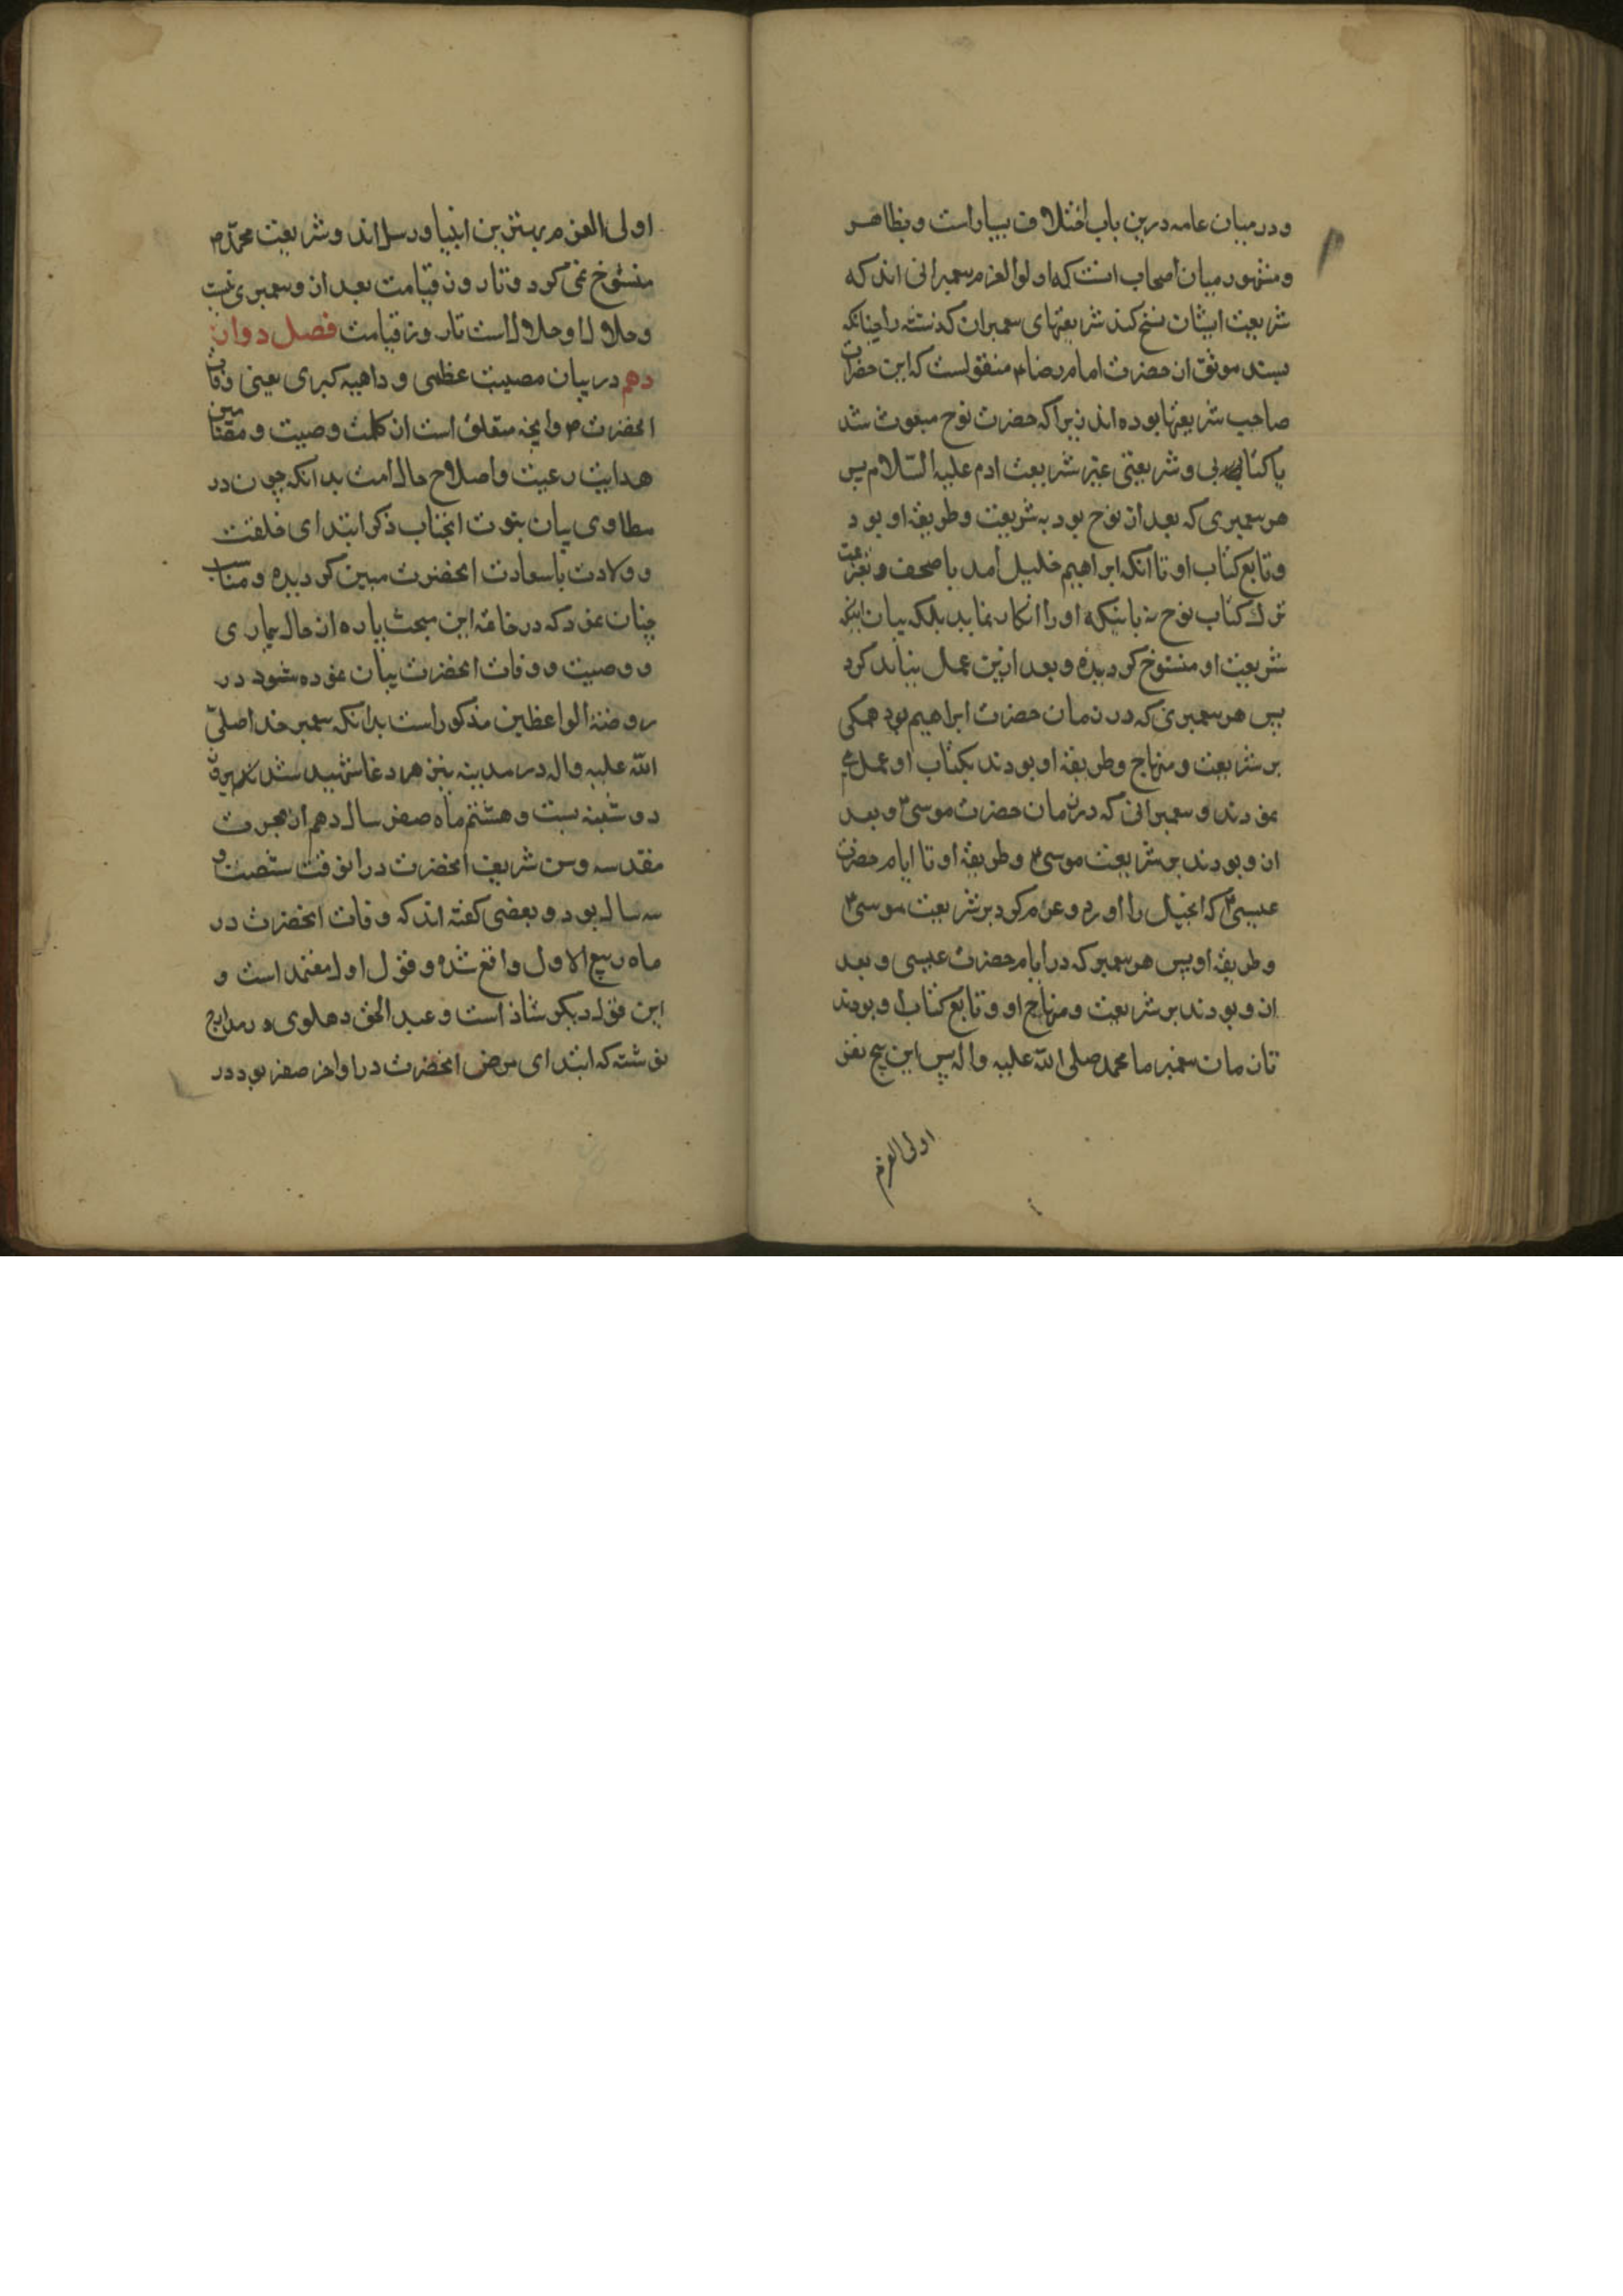 و در میان عامه درین باب اختلاف بسیار است و بظاهر
و مشهور میان اصحاب انست که اولوالعزم پیمبرانی اند که
شریعت ایشان نسخ کند شریعتهای پیمبران کذشته را چنانکه
بسند موثق از حضرت امام رضا ع منقولست که این حضرات
صاحب شریعتها بوده اند زیرا که حضرت نوح مبعوث شد
با کتابی و شریعتی غیر شریعت ادم علیه السلام پس
هر پیمبری که بعد از نوح بود به شریعت و طریقه او بود
و تابع کتاب او تا انکه ابراهیم خلیل امد با صحف و
ترک کتاب نوح نه باینکه او را انکار نماید بلکه بیان اینکه
شریعت او منسوخ کردیده و بعد ازین عمل نباید کرد
پس هر پیمبری که در زمان حضرت ابراهیم بود همکی
بر شریعت و منهاج و طریقه او بودند بکتاب او عمل می
نمودند و پیمبرانی که در زمان حضرت موسی ع و بعد
ان و بودند بر شریعت موسی ع و طریقه او تا ایام حضرت
عیسی ع که انجیل را اورد و عزم کرد بر شریعت موسی ع
و طریقه او پس هر پیمبر که در ایام حضرت عیسی و بعد
ان و بودند بر شریعت و منهاج او و تابع کتاب او بودند
تا زمان پیمبر ما محمد صلی الله علیه و اله پس این پنج نفر
اولی العزم
اولی العزم بهترین انبیا و رسل اند و شریعت محمد ص
منسوخ نمی کردد تا روز قیامت بعد از و پیمبری نیست
و حلال او حلال است تا روز قیامت فصل دوازدهم
دهم در بیان مصیبت عظمی و داهیه کبری یعنی وفات
انحضرت ص و انچه متعلق است از کلمات وصیت و مقتضا
هدایت رعیت و اصلاح حال امت بدانکه چون در
مطاوی بیان نبوت انجناب ذکر ابتدای خلقت
و ولادت باسعادت انحضرت مبین کردیده و مناسب
چنان نمود که در خاتمه این مبحث پاره از حال بیماری
و وصیت و وفات انحضرت بیان نموده شود در
روضة الواعظین مذکور است بدانکه پیمبر خدا صلی
الله علیه و اله در مدینه بزهر دغا شهید شد روز
دوشنبه بیست و هشتم ماه صفر سال دهم از هجرت
مقدسه و سن شریف انحضرت در انوقت شصت و
سه سال بود و بعضی کفته اند که وفات انحضرت در
ماه ربیع الاول واقع شده و قول اول معتمد است و
این قول دیکر شاذ است و عبد الحق دهلوی در مدارج
نوشته که ابتدای مرض انحضرت در اواخر صفر بود در